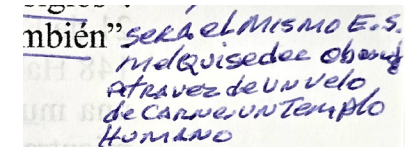 mbién” SERÁ el MISMO E.S.
Melquisedec obrando
Atravez de UN Velo
de CARNE, UN Templo
HUMANO